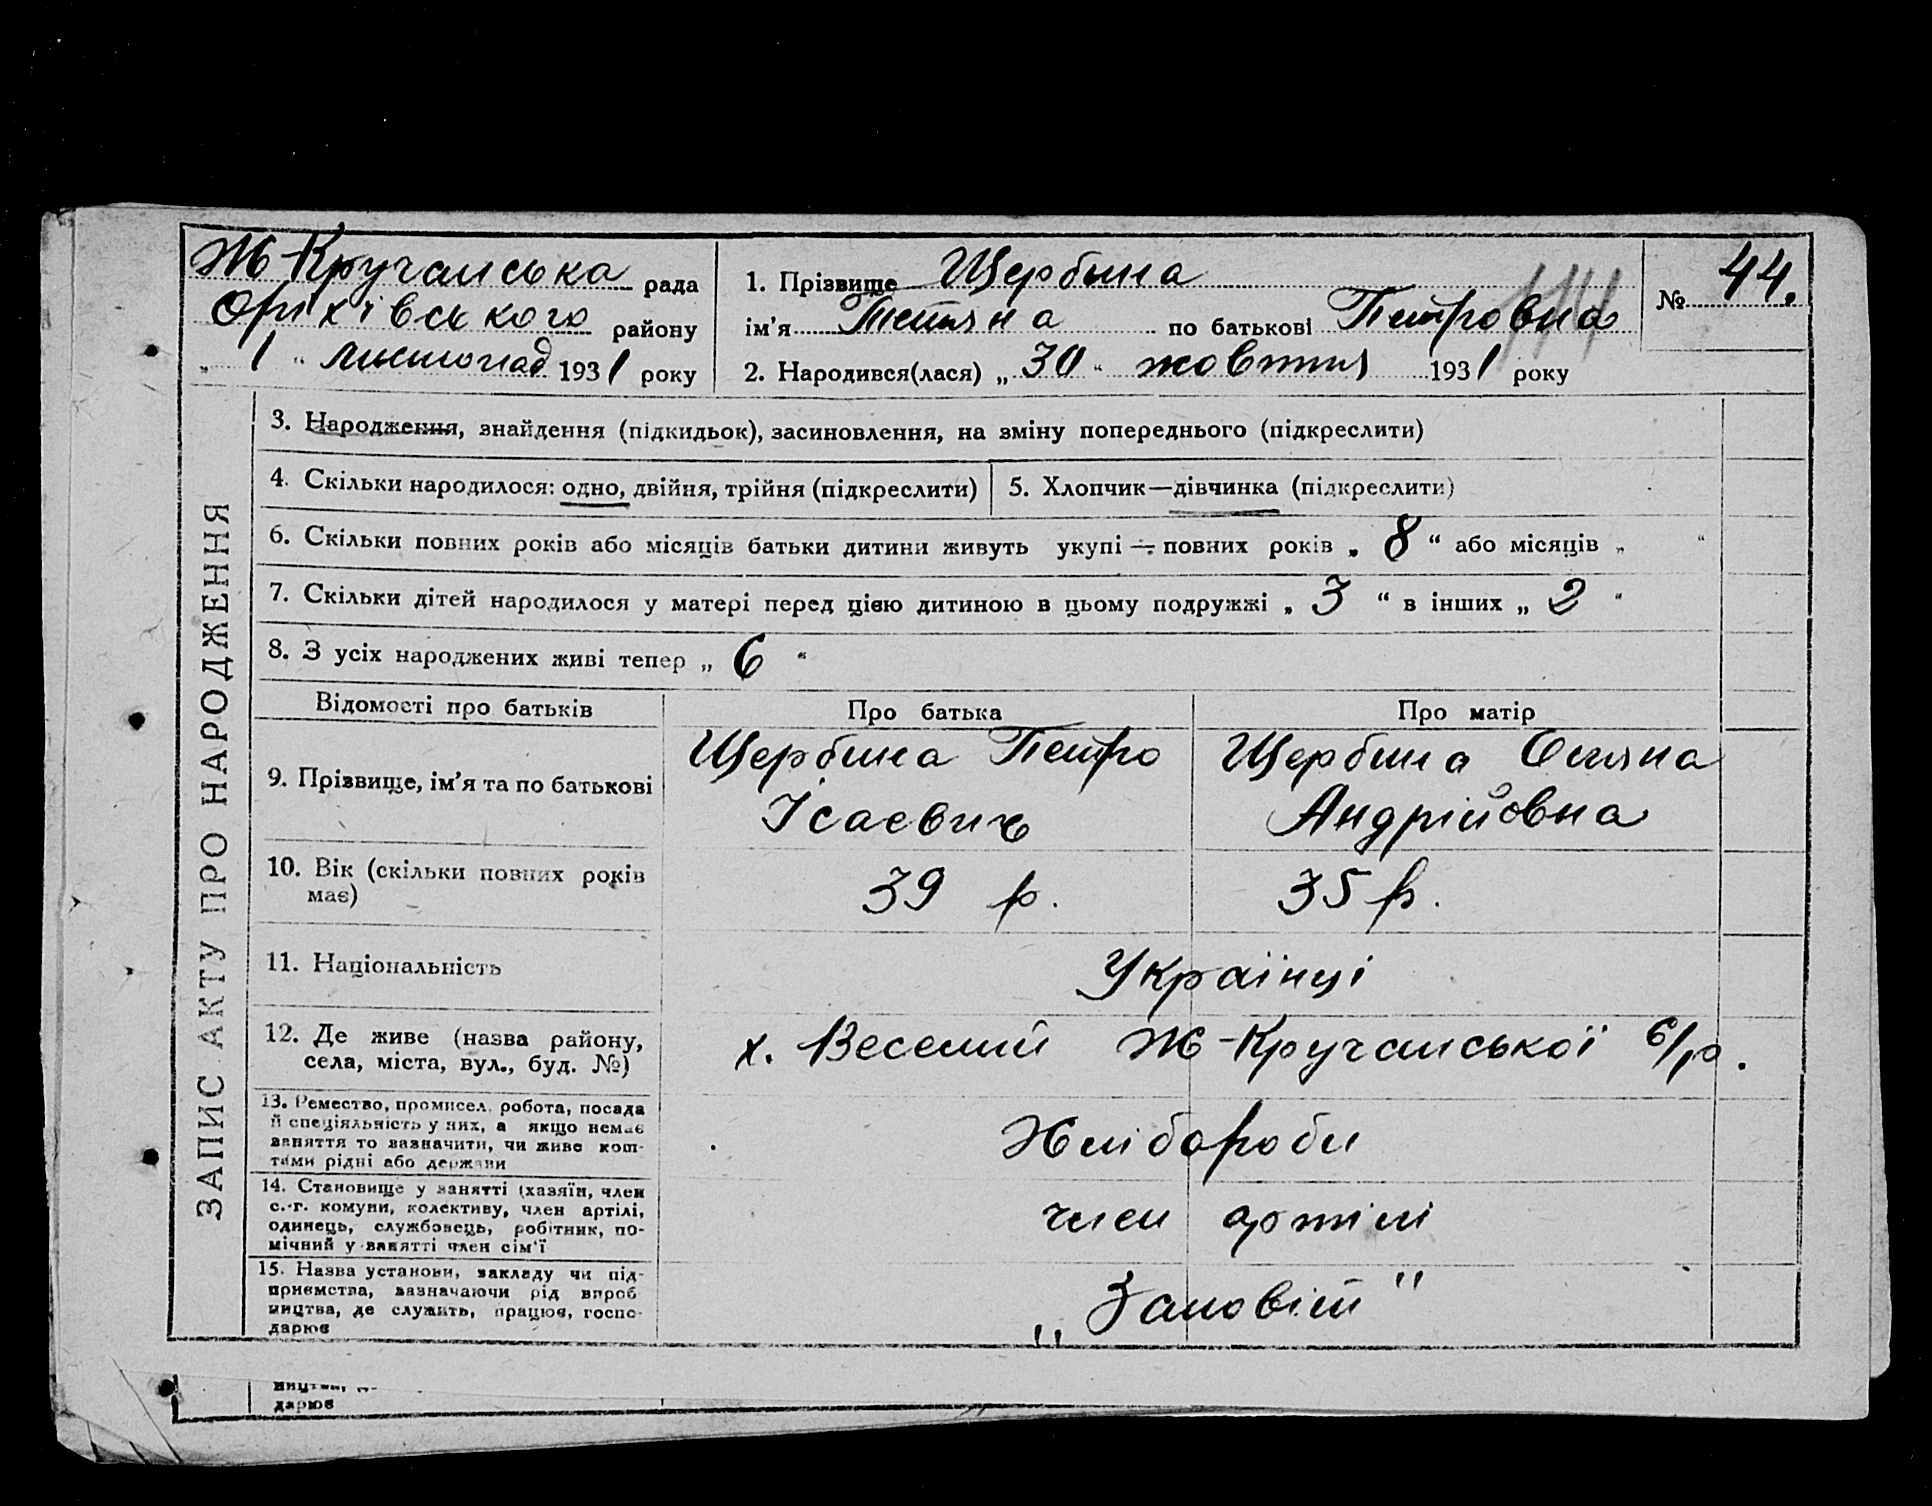 Ж-Кручанська рада
Оріхівського району
„ 1 " листопад 1931 року
1. Прізвище Щербина
ім'я Тетяна по батькові Петровна
2. Народився(лася) „ 30 " жовтня 1931 року
№ 44.
ЗАПИС АКТУ ПРО НАРОДЖЕННЯ
3. Народження, знайдення (підкидьок), засиновлення, на зміну попереднього (підкреслити)
4. Скільки народилося: одно, двійня, трійня (підкреслити)
5. Хлопчик—дівчинка (підкреслити)
6. Скільки повних років або місяців батьки дитини живуть укупі — повних років „ 8 " або місяців „ "
7. Скільки дітей народилося у матері перед цією дитиною в цьому подружжі „ 3 " в інших „ 2 "
8. З усіх народжених живі тепер „ 6 "
Відомості про батьків Про батька Про матір
9. Прізвище, ім'я та по батькові
Щербина Петро
Ісаєвич
Щербина Оляна
Андрійовна
10. Вік (скільки повних років
має)
39 р. 35 р.
11. Національність Українці
12. Де живе (назва району,
села, міста, вул., буд. №)
х. Веселий Ж-Кручанської с/р.
13. Ремество, промисел, робота, посада
й спеціяльність у них, а якщо немає
заняття то зазначити, чи живе кош-
тами рідні або держави
Хлібороби
14. Становище у занятті (хазяїн, член
с.-г. комуни, колективу, член артілі,
одинець, службовець, робітник, по-
мічний у занятті член сім'ї
член артілі
15. Назва установи, закладу чи під-
приємства, зазначаючи рід вироб
ництва, де служить, працює, госпо-
дарює
„ Заповіт "
дарює